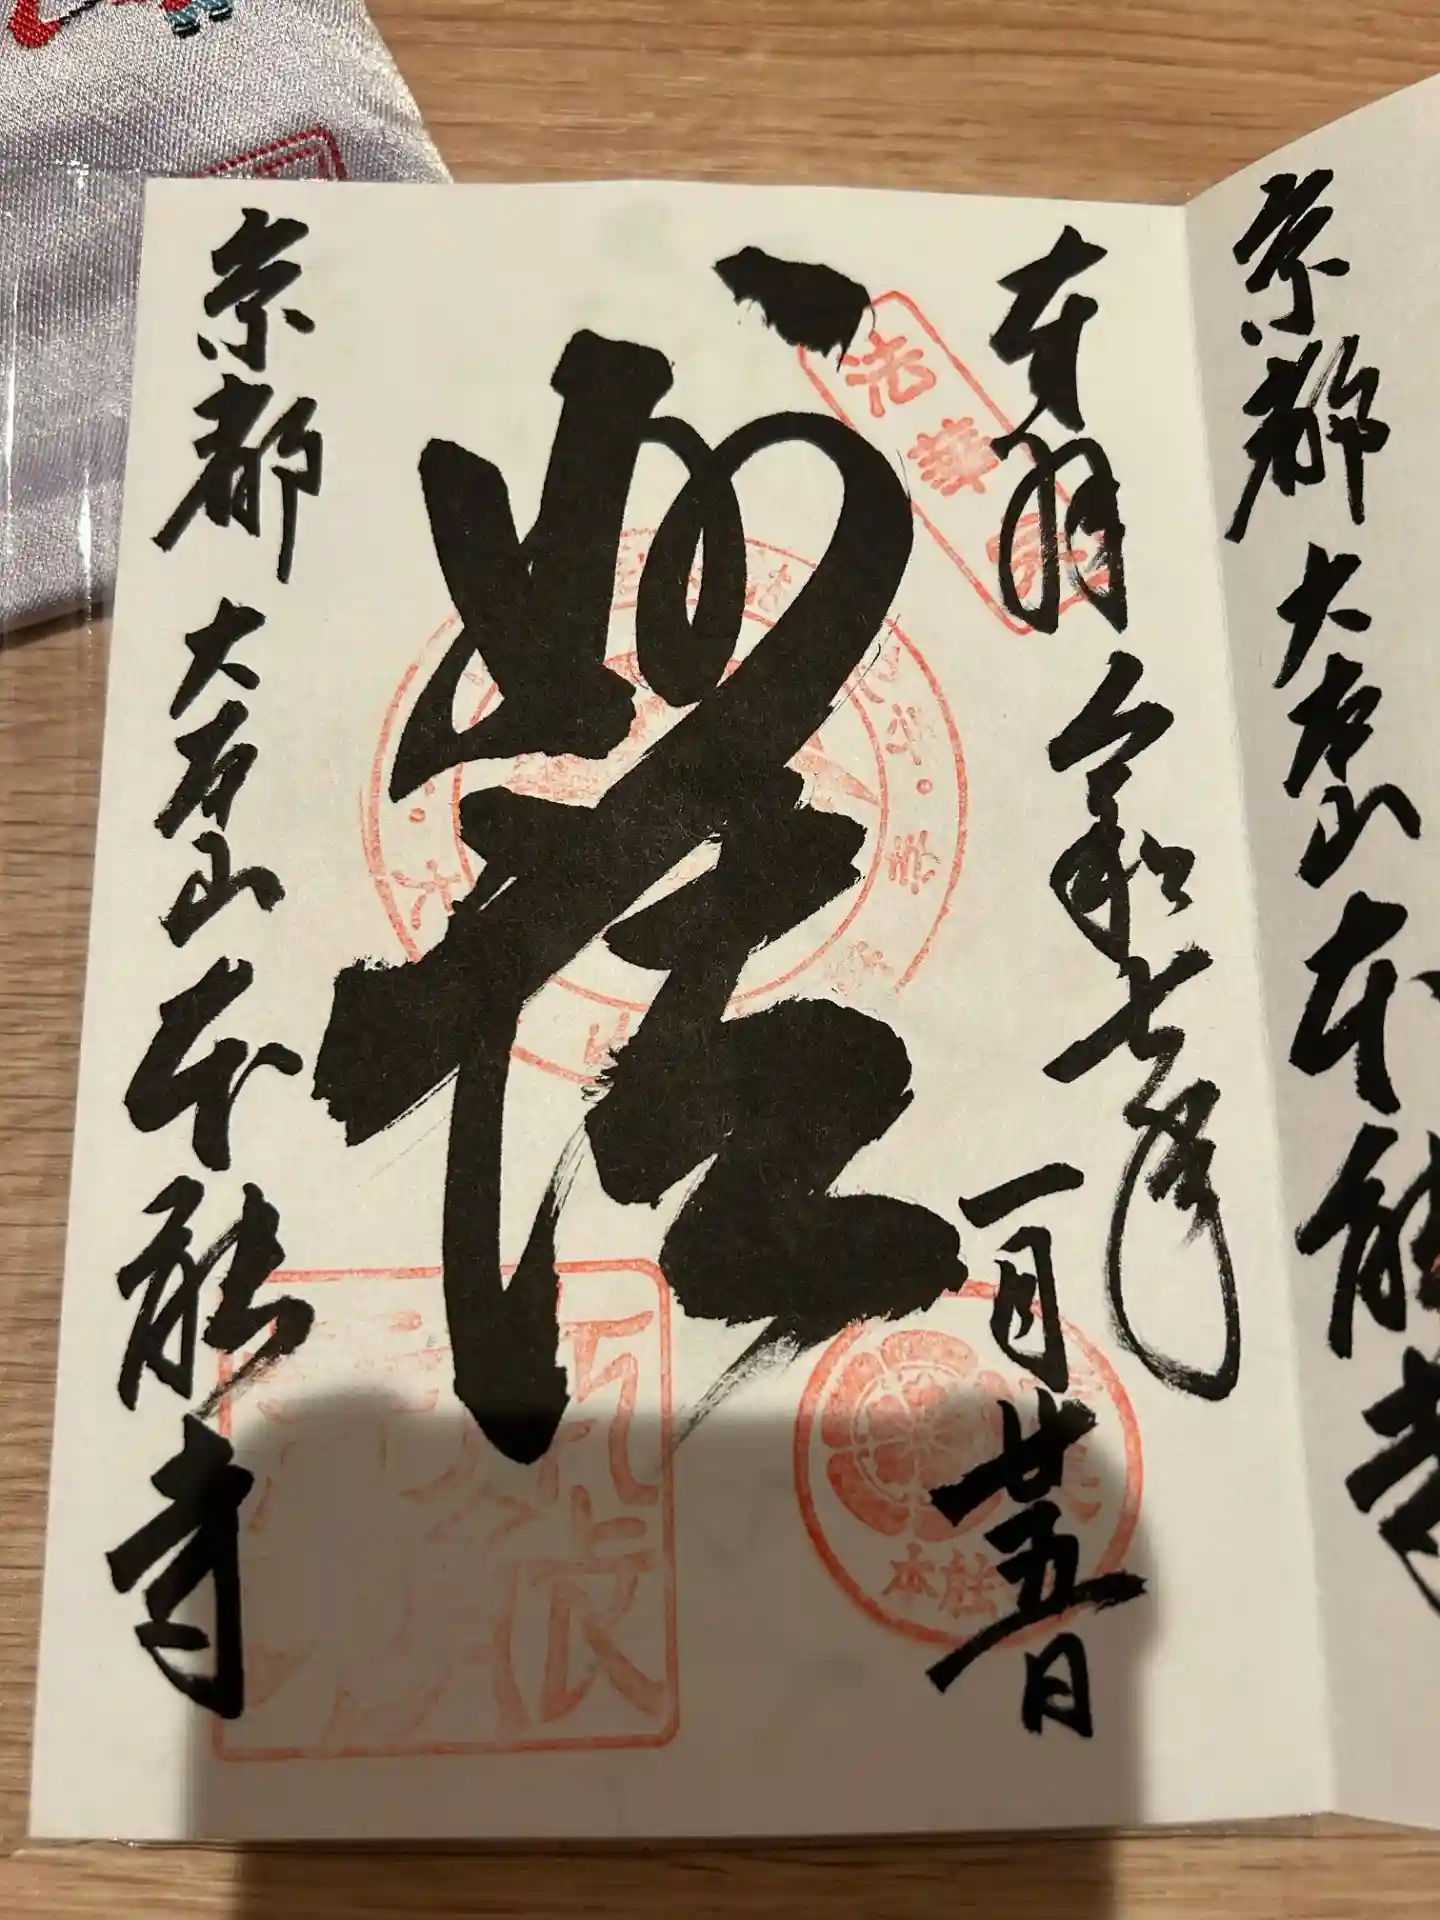 京都 大本山 本能寺
奉拝 令和七年
一月廿五日
法華宗
妙法
京都 大本山 本能寺